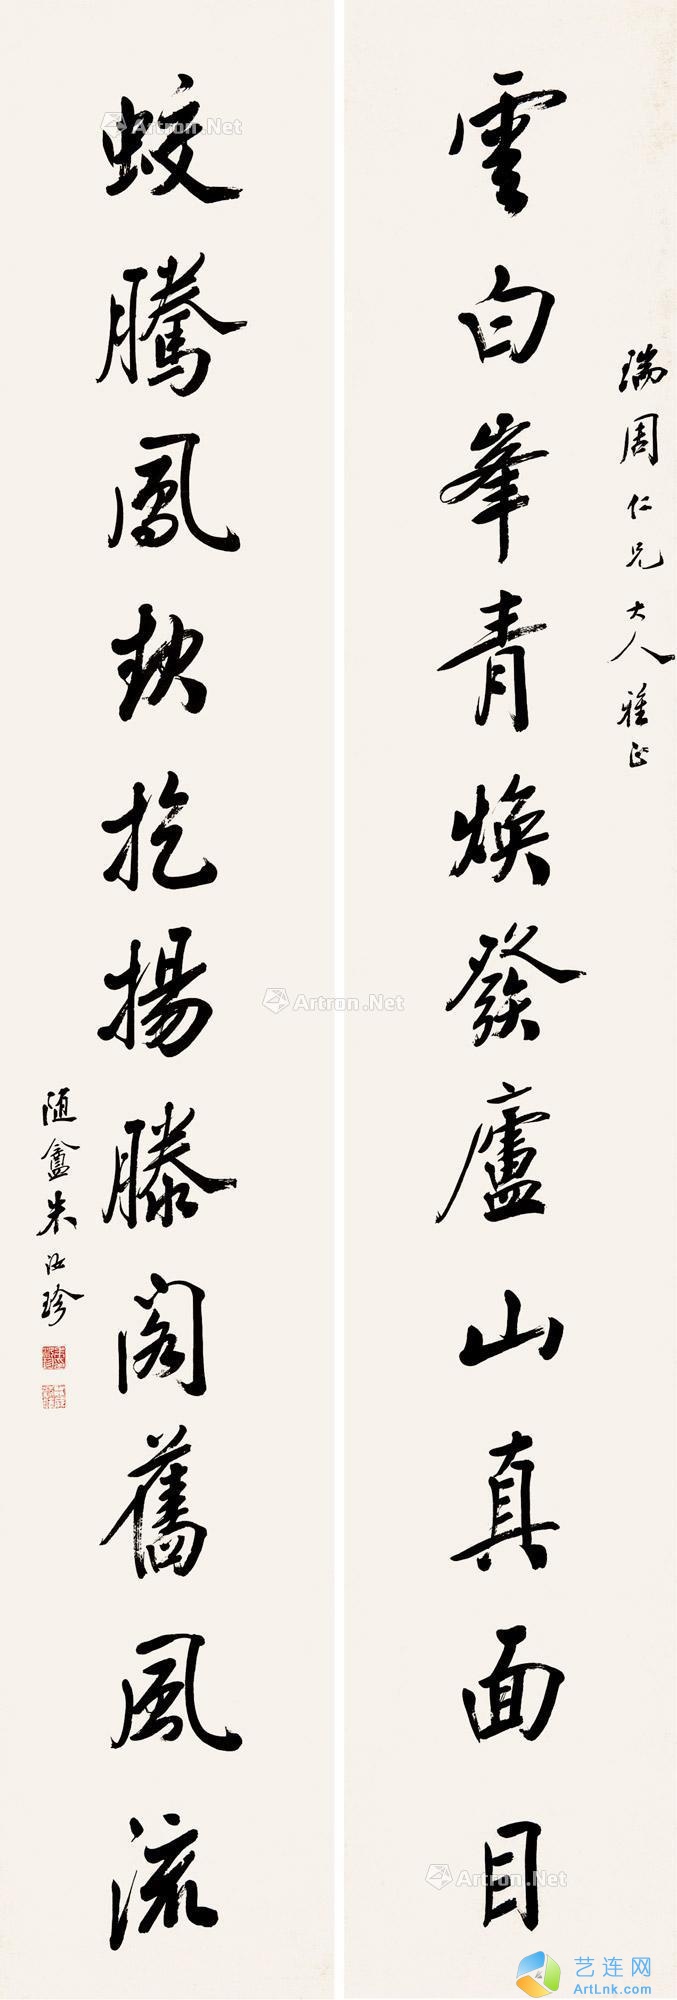 瑞周仁兄大人雅正
雲白峯青煥發廬山真面目
蛟騰鳳扢揚滕閣舊風流
随盦朱汝珍
Artron.Net
Artron.Net
Artron.Net
艺连网
ArtLnk.com